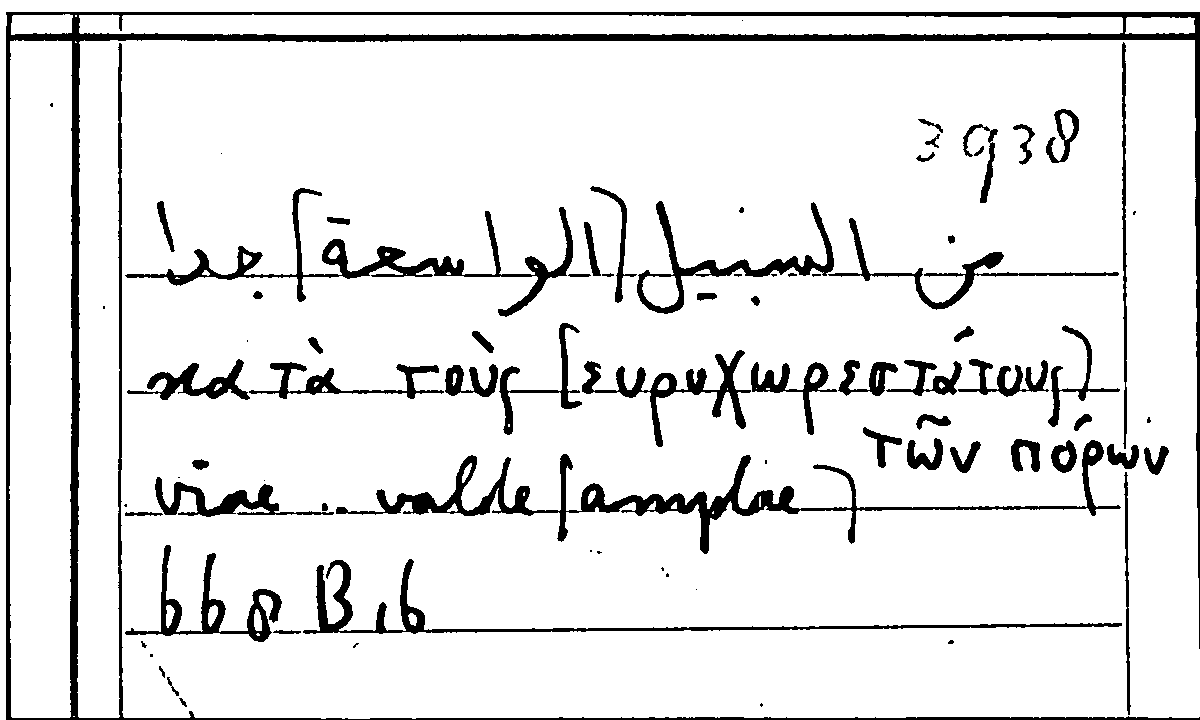 3938
من السبيل [الواسعة] جدا
κατὰ τοὺς [εὐρυχωρεστάτους]
τῶν πόρων
viae .. valde [amplae]
668 B 16